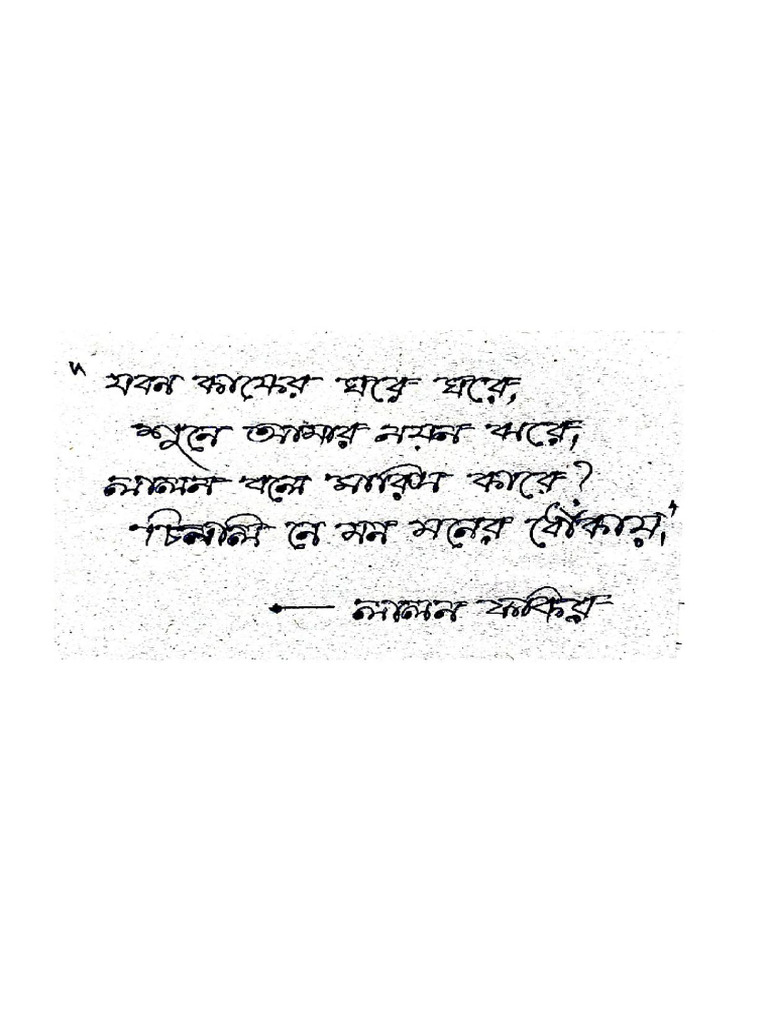 "যবন কাফের ঘরে ঘরে,
শুনে আমার নয়ন ঝরে,
লালন বলে মারিস কারে?
চিনলি নে মন মনের ধোঁকায়।"
— লালন ফকির